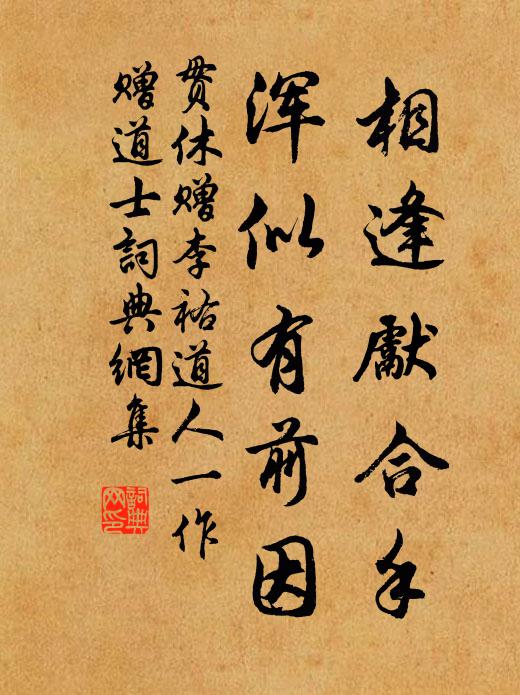 相逢獻合手
渾似有前因
贯休赠李祐道人一作
赠道士詞典網集
詞典网印